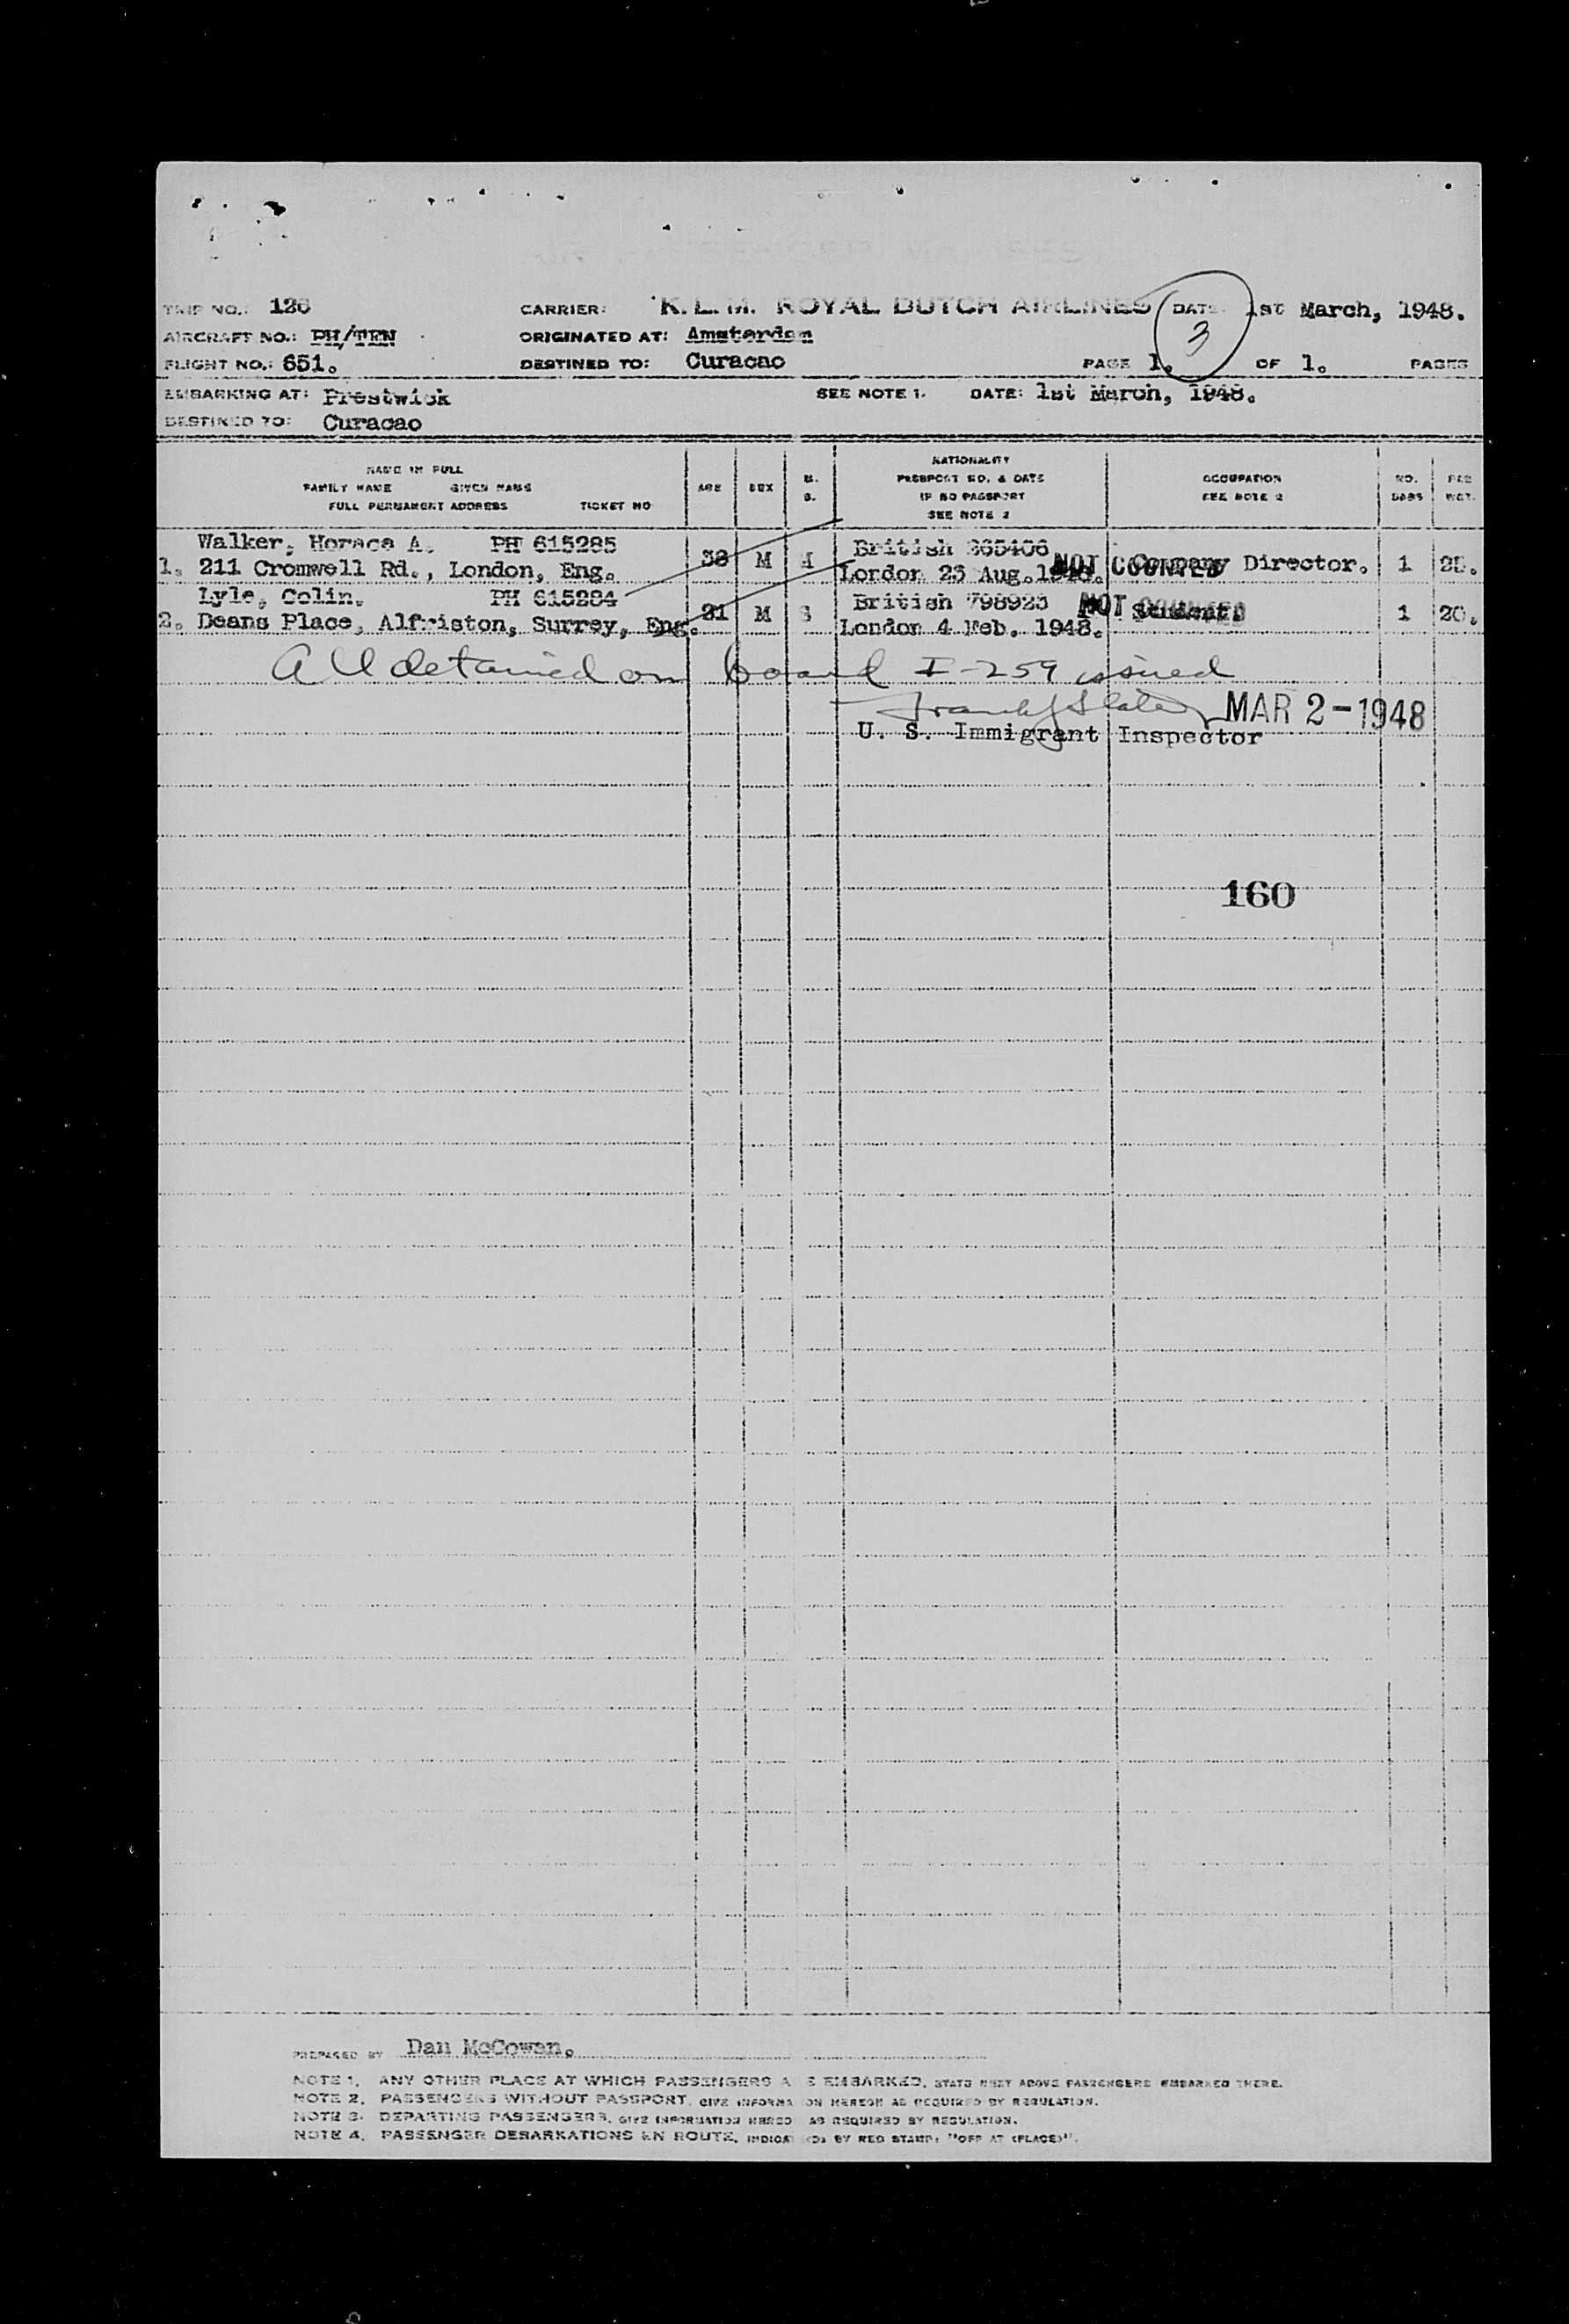 TRIP NO.: 126 CARRIER: K.L.M. ROYAL DUTCH AIRLINES DATE 1st March, 1948.
3
AIRCRAFT NO.: PH/TEN ORIGINATED AT: Amsterdam
FLIGHT NO.: 651. DESTINED TO: Curacao PAGE 1. OF 1. PAGES
EMBARKING AT: Prestwick SEE NOTE 1. DATE: 1st March, 1948.
DESTINED TO: Curacao
NAME IN FULL
FAMILY NAME GIVEN NAME
FULL PERMANENT ADDRESS TICKET NO
AGE SEX M. S.
NATIONALITY
PASSPORT NO. & DATE
IF NO PASSPORT
SEE NOTE 2
OCCUPATION
SEE NOTE 2
NO. BAGS
WGT.
Walker, Horace A. PH 615285 British 365406
1. 211 Cromwell Rd., London, Eng. 38 M M London 25 Aug. NOT COUNTED Company Director. 1
Lyle, Colin. PH 615284 British 798923
2. Deans Place, Alfriston, Surrey, Eng. 21 M S London 4 Feb. 1948. NOT COUNTED Student 1 20.
All detained on board I-259 issued
Frank J Slater MAR 2-1948
U. S. Immigrant Inspector
160
PREPARED BY Dan McCowan.
NOTE 1. ANY OTHER PLACE AT WHICH PASSENGERS A E EMBARKED, STATE NEXT ABOVE PASSENGERS EMBARKED THERE.
NOTE 2. PASSENGERS WITHOUT PASSPORT, GIVE INFORMA ON HEREON AS REQUIRED BY REGULATION.
NOTE 3. DEPARTING PASSENGERS, GIVE INFORMATION HEREO AS REQUIRED BY REGULATION.
NOTE 4. PASSENGER DEBARKATIONS EN ROUTE, INDICA ED BY RED STAMP: "OFF AT (PLACE)".